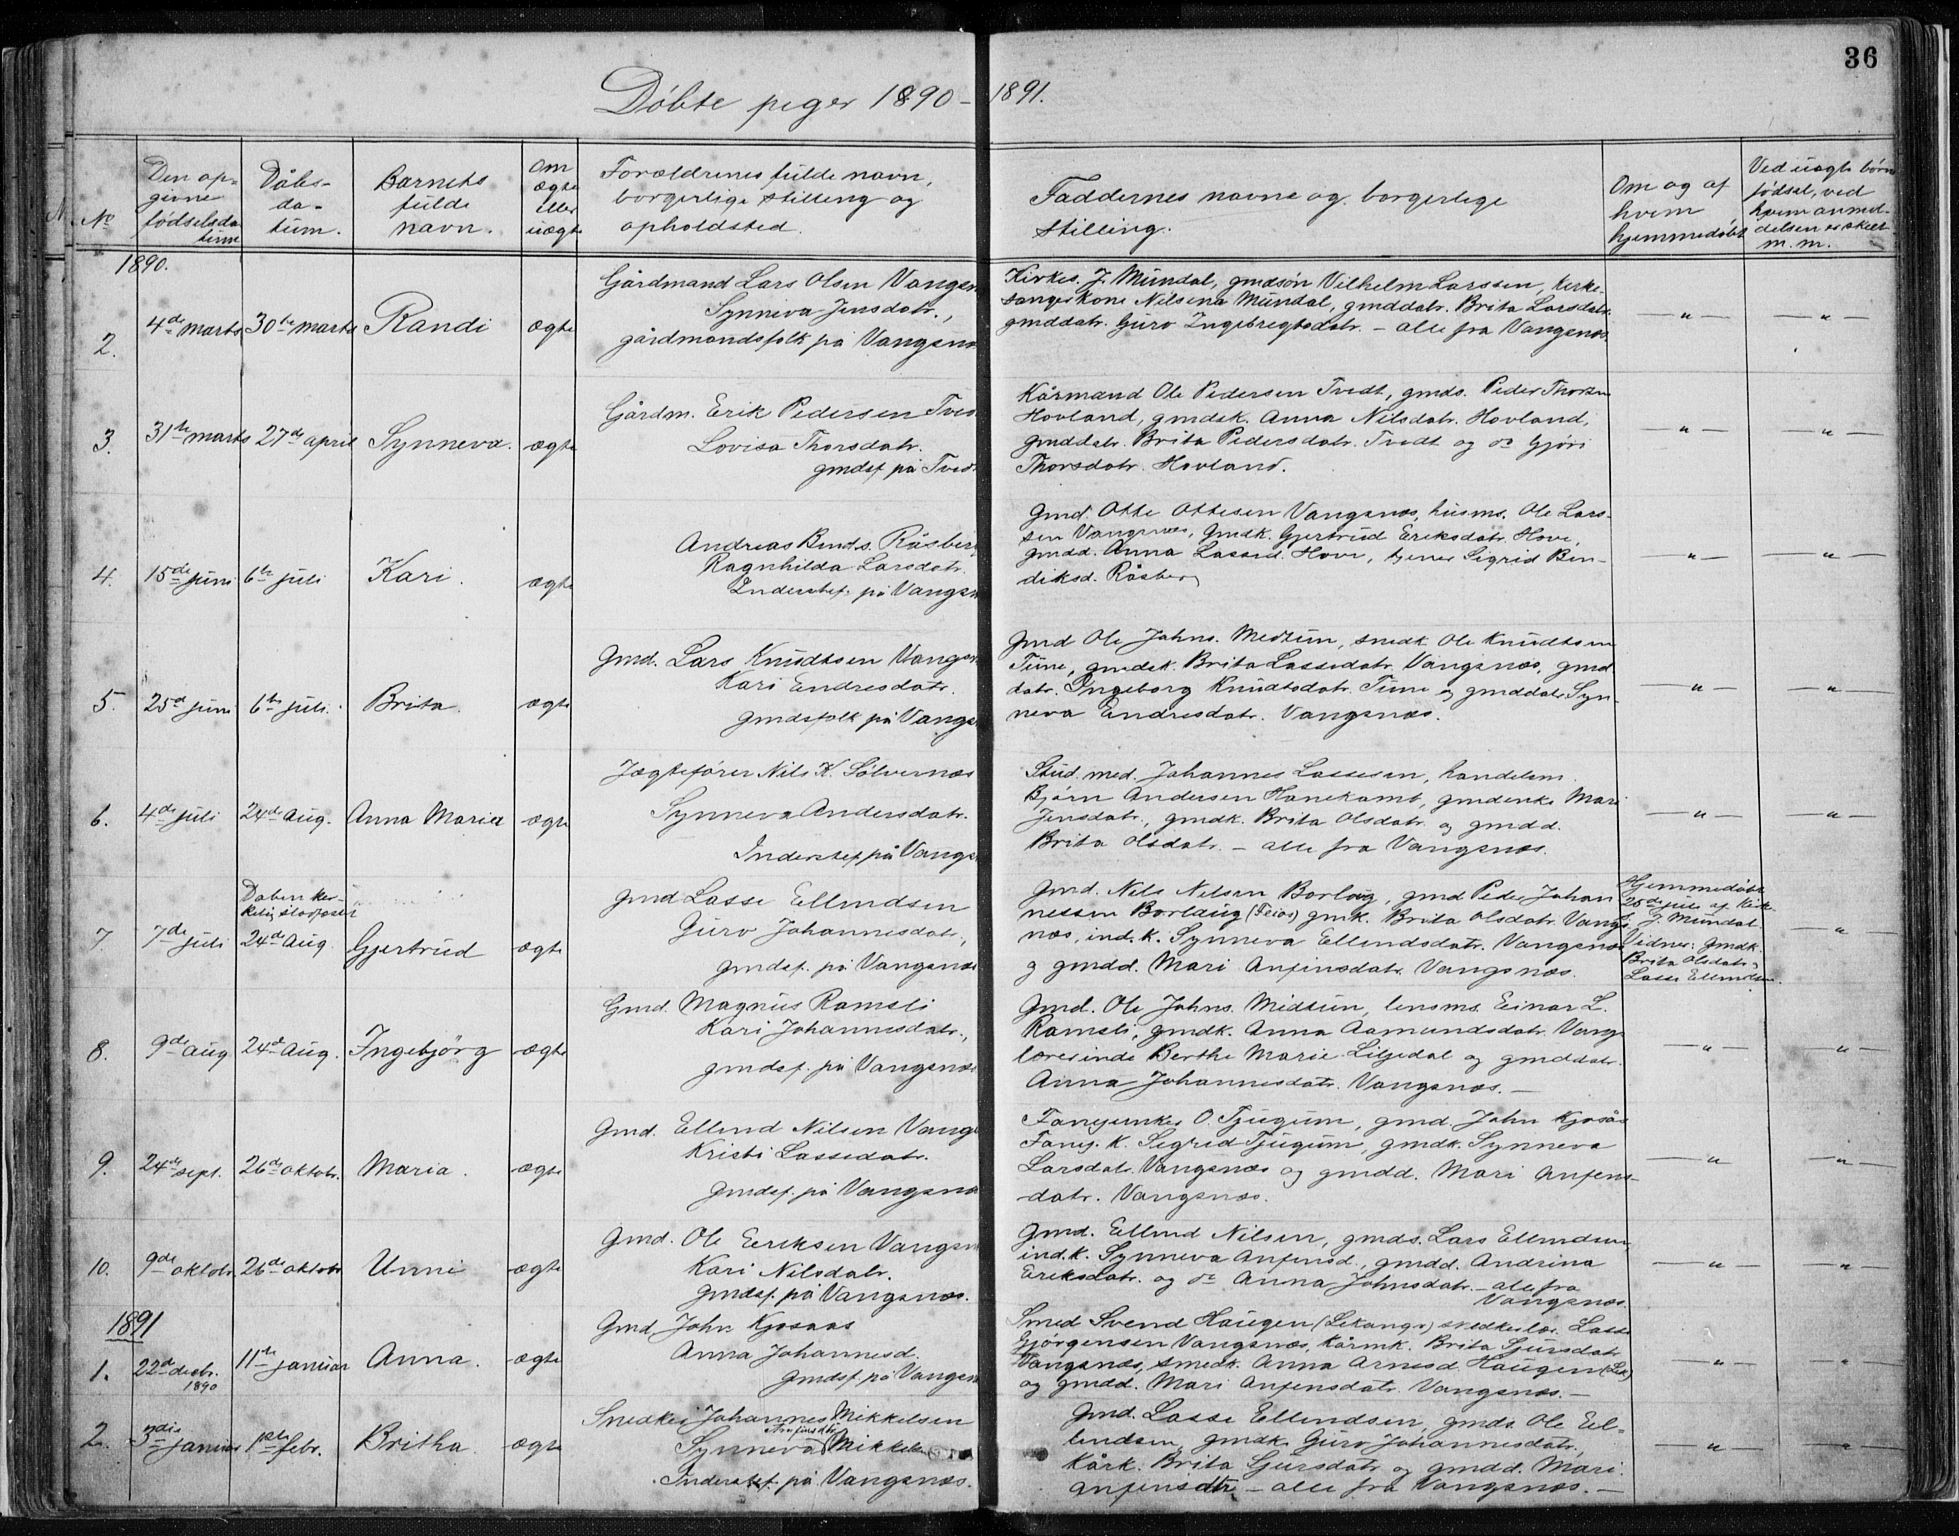 36
Døbte piger 1890–1891.
No
Den opgivne fødselsdatum
Dåbsdatum.
Barnets fulde navn.
Om ægte eller uægte
Forældrenes fulde navn, borgerlige stilling og opholdsted.
Faddernes navne og borgerlige stilling.
Om og af hvem hjemmedøbt
Ved uægte børns fødsel, ved hvem anmeldelsen er skeet m. m.
1890.
2. 4de marts 30te marts Randi ægte
Gårdmand Lars Olsen
Synneva Jensdatr.,
gårdmandsfolk på
Kirkes. J. Mundal, gmdsøn Vilhelm Larssen, kirke-
sangerkone Nilsena Mundal, gmddatr. Brita Larsdatr.
gmddatr. Guro Ingebregtsdatr. – alle fra Vangsnæs.
— " — — " —
3. 31te marts 27de april Synneva. ægte
Gårdm. Erik Pedersen
Lovisa Thorsdatr.
gmdsf. på
Kårmand Ole Pedersen Tvedt, gmds. Peder
Hovland, gmdsk. Anna Nilsdatr. Hovland,
gmddatr. Brita Pedersdatr. Tvedt og do Gjøri
Thorsdatr. Hovland.
— " — — " —
4. 15de juni 6te juli Kari. ægte
Andreas Bends.
Ragnhilda Larsdatr.
Inderstef. på
Gmd. Otte Ottesen Vangsnæs, husms. Ole Lars-
sen Vangsnæs, Gmdk. Gjertrud Eriksdatr. Hove,
gmdd. Anna Lassed. Hove, tjener Sigrid Ben-
diksd. Råsberg
" — — " —
5. 25d juni 6te juli. Brita. ægte
Gmd. Lars Knudtsen
Kari Endresdatr.
gmdsfolk på
Gmd Ole Johns. Medtun, smedk Ole Knudtsen
Tune, gmdsk. Brita Lassedatr. Vangsnæs, gmd
datr. Ingeborg Knudtsdatr. Tune og gmddatr. Syn-
neva Endresdatr. Vangsnæs.
— " — — " —
6. 4de juli 24de Aug. Anna Maria ægte
Jægtefører Nils K. Sølvernæs
Synneva Andersdatr.
Inderstef på
Stud. med. Johannes Lassesen, handelsm.
Bjørn Andersen Hanekamb, gmdenke Mari
Jensdatr., gmdk. Brita Olsdatr. og gmdd.
Brita Olsdatr. – alle fra Vangsnæs.
— " — — " —
Dåben
7. 7de juli 24de Aug. Gjertrud ægte
Gmd Lasse Ellendsen
Guro Johannesdatr.,
gmdsf. på Vangsnæs
Gmd. Nils Nilsen Borlaug, gmd Peder Johan
nessen Borlaug (Feios) gmk. Brita Olsdatr. Vangs
næs, ind. k. Synneva Ellendsdatr. Vangsnæs
og gmdd. Mari Anfinsdatr. Vangsnæs.
Hjemmedøbt
25de juli af Kirk.
J. Mundal
Vidner: Gmdk.
Brita Olsdatr.
Lasse Ellendsen.
— " —
8. 9de Aug 24de Aug. Ingebjörg ægte
Gmd. Magnus Ramsli
Kari Johannesdatr.,
gmdsf. på Vangsnæs
Gmd. Ole Johns. Midtun, lensms. Einar L.
Ramsli, gmdk. Anna Aamundsdatr. Vang
lærerinde Berthe Marie Liljedal og gmddatr.
Anna Johannesdatr. Vangsnæs. —
— " — — " —
9. 24de sept. 26de oktobr. Maria. ægte
Gmd. Ellend Nilsen
Kristi Lassedatr.
gmdsf. på
Fanejunker O. Tjugum, gmd. John Kjosås
Fanej. K. Sigrid Tjugum, gmdk. Synneva
Larsdatr. Vangsnæs og gmdd. Mari Anfens-
datr. Vangsnæs.
— " — — " —
10. 9de oktobr. 26de oktobr Unni ægte
Gmd. Ole Eriksen
Kari Nilsdatr.
Gmdsf. på Vangsnæs.
Gmd. Ellend Nilsen, gmds. Lars Ellendsen,
ind.k. Synneva Anfensd., gmdd. Andrina
Eriksdatr. og do Anna Johnsdatr. – alle fra
Vangsnæs.
— " — "
1891
1. 22d decbr. 1890 11te januar Anna. ægte
Gmd. John Kjosaas
Anna Johannesd.
Gmdsf. på
Smed Svend Haugen (Leikanger) snedkerlær. Lasse
Gjørgensen Vangsnæs, Kårmk. Brita Sjursdatr
Vangsnæs, smedk. Anna Arnesd. Haugen (Leik)
og gmdd. Mari Anfensdatr. Vangsnæs. —
— " — "
2. 3die januar 1ste febr. Britha. ægte
Snedker Johannes Mikkelsen
Anfinsdtr
Synneva Mikkels
Inderstef. på Vangsnæs.
Gmd. Lasse Ellendsen, gmds. Ole El-
lendsen, gmdk. Guro Johannesdatr.,
Kårk. Brita Sjursdatr og gmdd. Mari
Anfensdtr – alle fra Vangsnæs. —
— " — "